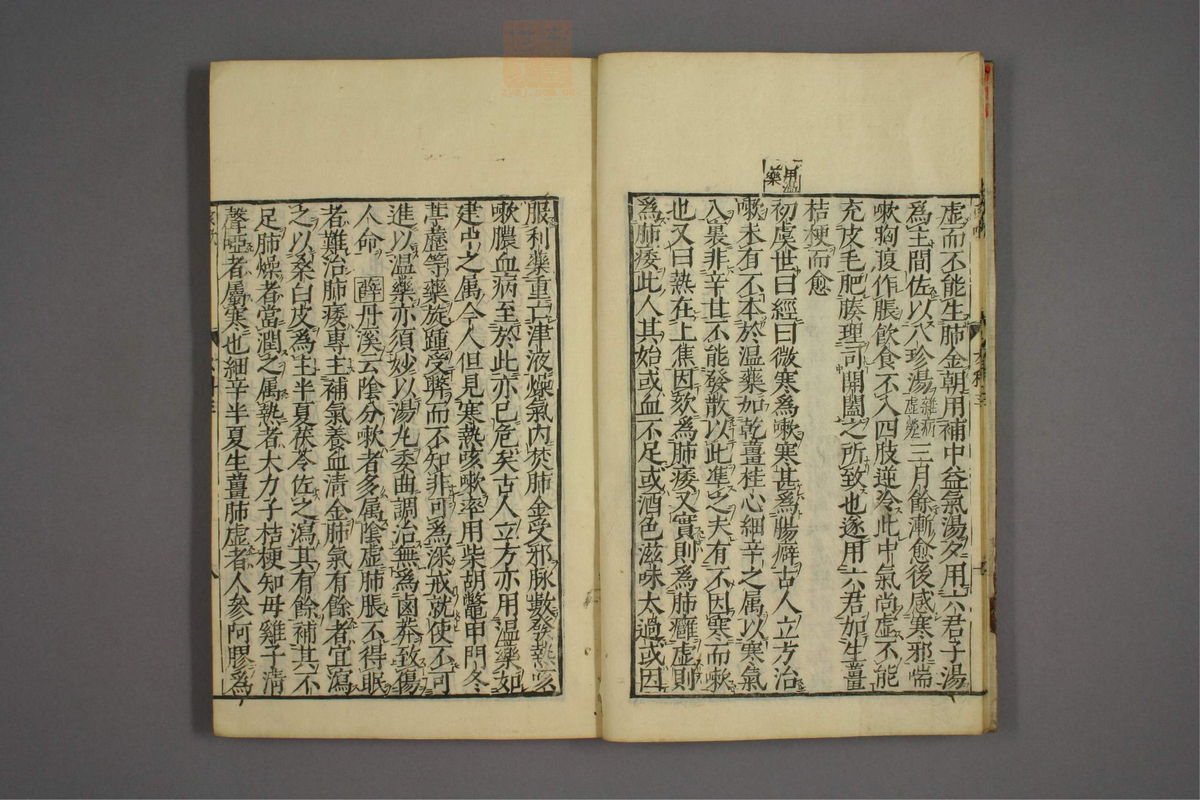 虚而不能生肺金朝用補中益氣湯夕用六君子湯
為主間佐以八珍湯
雜症
虚勞
三月餘漸愈後感寒邪喘
嗽胸腹作脹飲食不入四肢逆冷此中氣尚虚不能
充皮毛肥腠理司開闔之所致也遂用六君加生薑
桔梗而愈
用藥
初虞世曰經曰微寒為嗽寒甚為腸癖古人立方治
嗽未有不本於温藥如乾薑桂心細辛之属以寒氣
入裏非辛甘不能發散以此準之夫有不因寒而嗽
也又曰熱在上焦因欬為肺痿又實則為肺癰虚則
為肺痿此人其始或血不足或酒色滋味太過或因
服利藥重亡津液燥氣内焚肺金受邪脉數發熱咳
嗽膿血病至於此亦已危矣古人立方亦用温藥如
建中之属今人但見寒熱咳嗽率用柴胡鱉甲門冬
葶藶等藥旋踵受弊而不知非可為深戒就使不可
進以温藥亦須妙以湯丸委曲調治無為鹵莽致傷
人命 薛 丹溪云陰分嗽者多属陰虚肺脹不得眠
者難治肺痿專主補氣養血清金肺氣有餘者宜瀉
之以桑白皮為主半夏茯苓佐之瀉其有餘補其不
足肺燥者當潤之属熱者大力子桔梗知母雞子清
聲啞者属寒也細辛半夏生薑肺虚者人參阿膠為